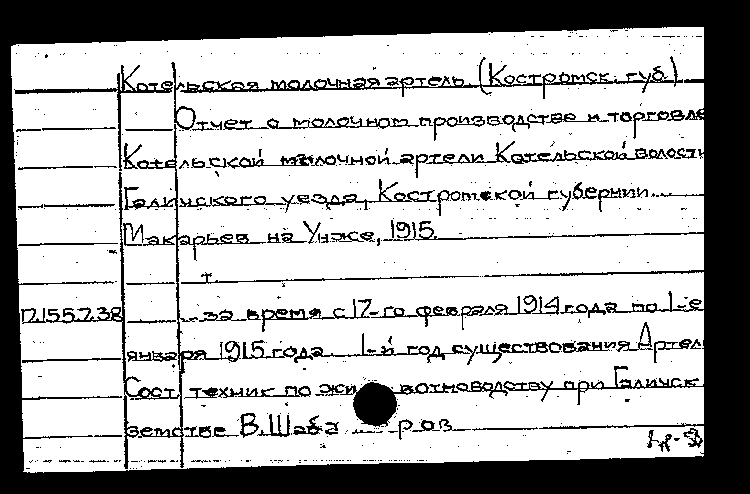 Котельская молочная артель (Костромск. губ.)
Отчет о молочном производстве и торговле
Котельской молочной артели Котельской волости
Галичского уезда, Костромской губернии...
Макарьев на Унже, 1915.
т.
П.155.7.38 ...за время с 17-го февраля 1914 года по 1-е
января 1915 года. 1-й год существования Артели
Сост. техник по жи вотноводству при Галичск
земстве В. Шаба ров